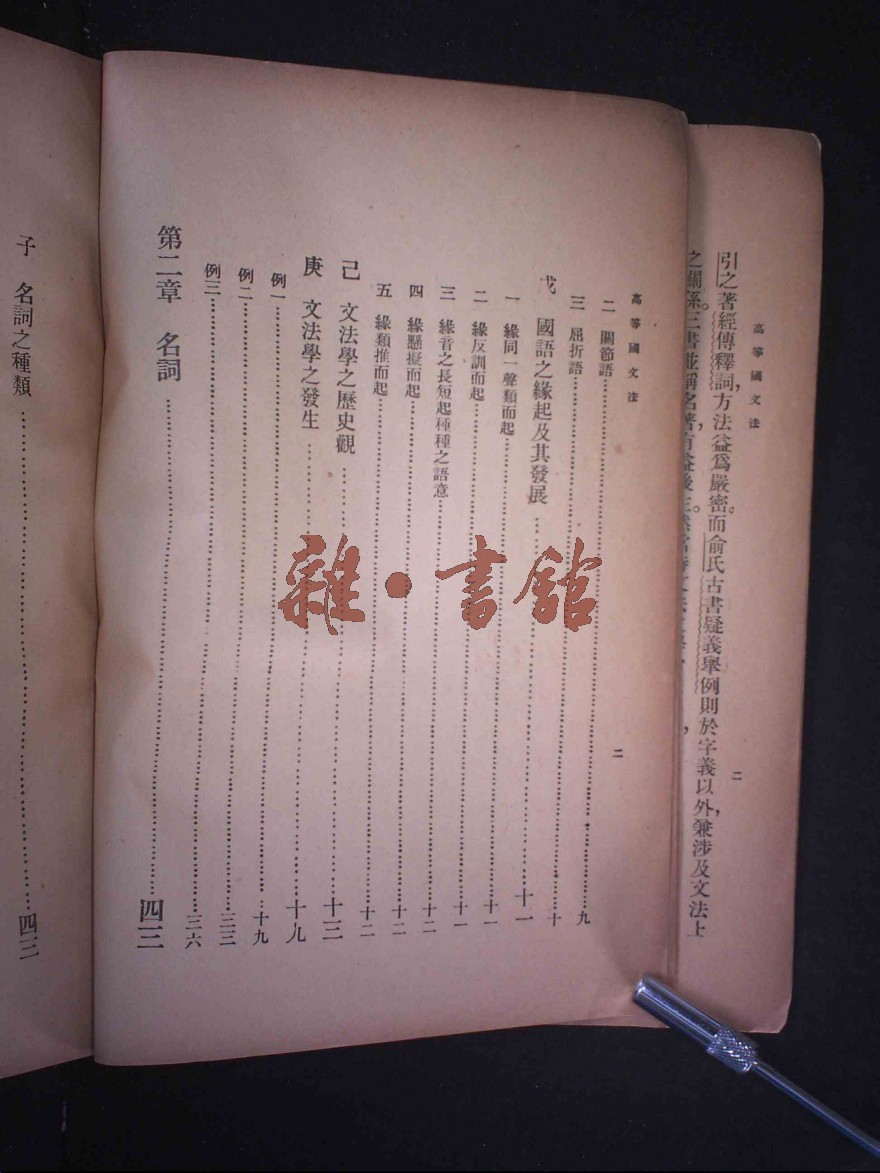 高等國文法
二
引之著經傳釋詞，方法益爲嚴密。而俞氏古書疑義舉例則於字義以外，兼涉及文法上
之關係。三書並稱名著，有益後
高等國文法
二
二　關節語……九
三　屈折語……十
戊　國語之緣起及其發展……十一
一　緣同一聲類而起……十一
二　緣反訓而起……十一
三　緣音之長短起種種之語意……十二
四　緣懸擬而起……十二
五　緣類推而起……十二
己　文法學之歷史觀……十三
庚　文法學之發生……十九
例一……十九
例二……三三
例三……三六
第二章　名詞……四三
子　名詞之種類……四三
雜·書館